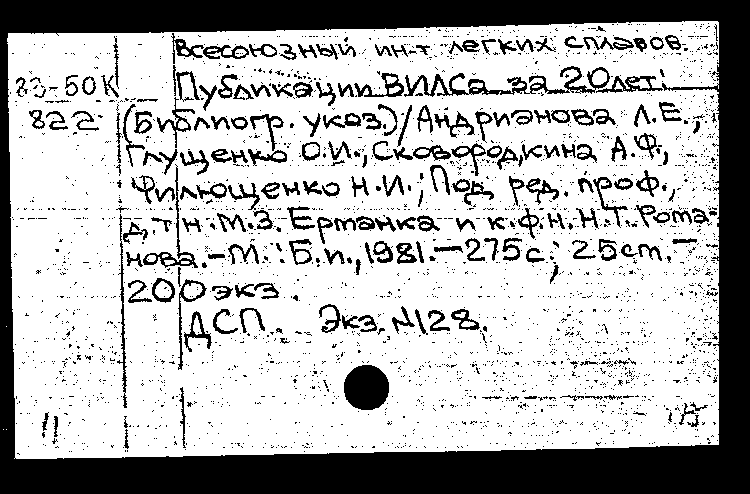 Всесоюзный ин-т легких сплавов.
83-50К Публикации ВИЛСа за 20 лет:
822 (Библиогр. указ.)/Андрианова Л.Е.,
Глущенко О.И., Сковородкина А.Ф.,
Филющенко Н.И.; Под ред. проф.,
д.т.н. М.З. Ерманка и к.ф.н. Н.Т. Рома-
нова.-М.: Б.и., 1981.-275с.; 25см.-
200экз.
ДСП. Экз. №128.
11